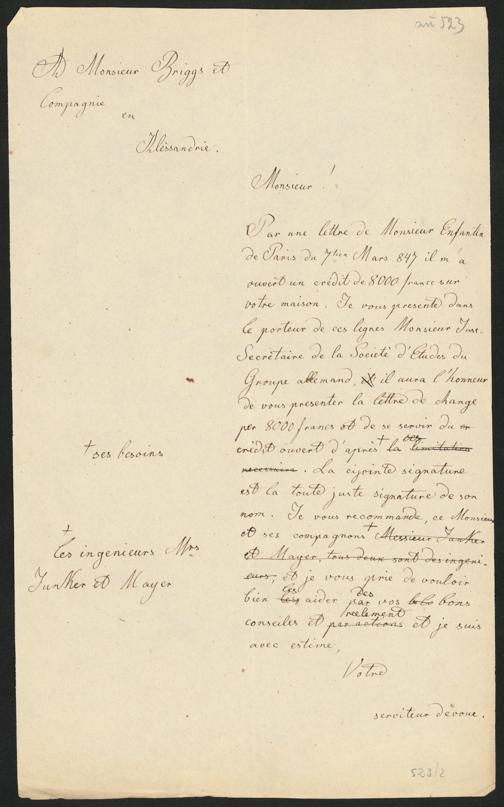 ad 523
A Monsieur Briggs et
Compagnie
en
Alèssandrie.
Monsieur!
Par une lettre de Monsieur Enfantin
de Paris du 7tien Mars 847 il m'a
ouvert un crédit de 8000 franc sur
votre maison. Je vous presente dans
le porteur de ces lignes Monsieur
Secretaire de la Société d'Etudes du
Groupe allemand, et il aura l'honneur
de vous presenter la lettre de change
per 8000 francs et de se servir du
crèdit ouvert d'après + la limitation
necessaire. La cijointe signature
est la toute juste signature de son
nom. Je vous recommande, ce Monsieur
et ses compagnons + Messieur Junker
et Mayer, tous deux sont des ingeni-
eurs, et je vous prie de vouloir
bien les aider par vos bons
conseiles et par actions réelement et je suis
avec estime,
Votre
serviteur dévoue.
+ ses besoins
+
les ingenieurs Mrs
Junker et Mayer
523/2